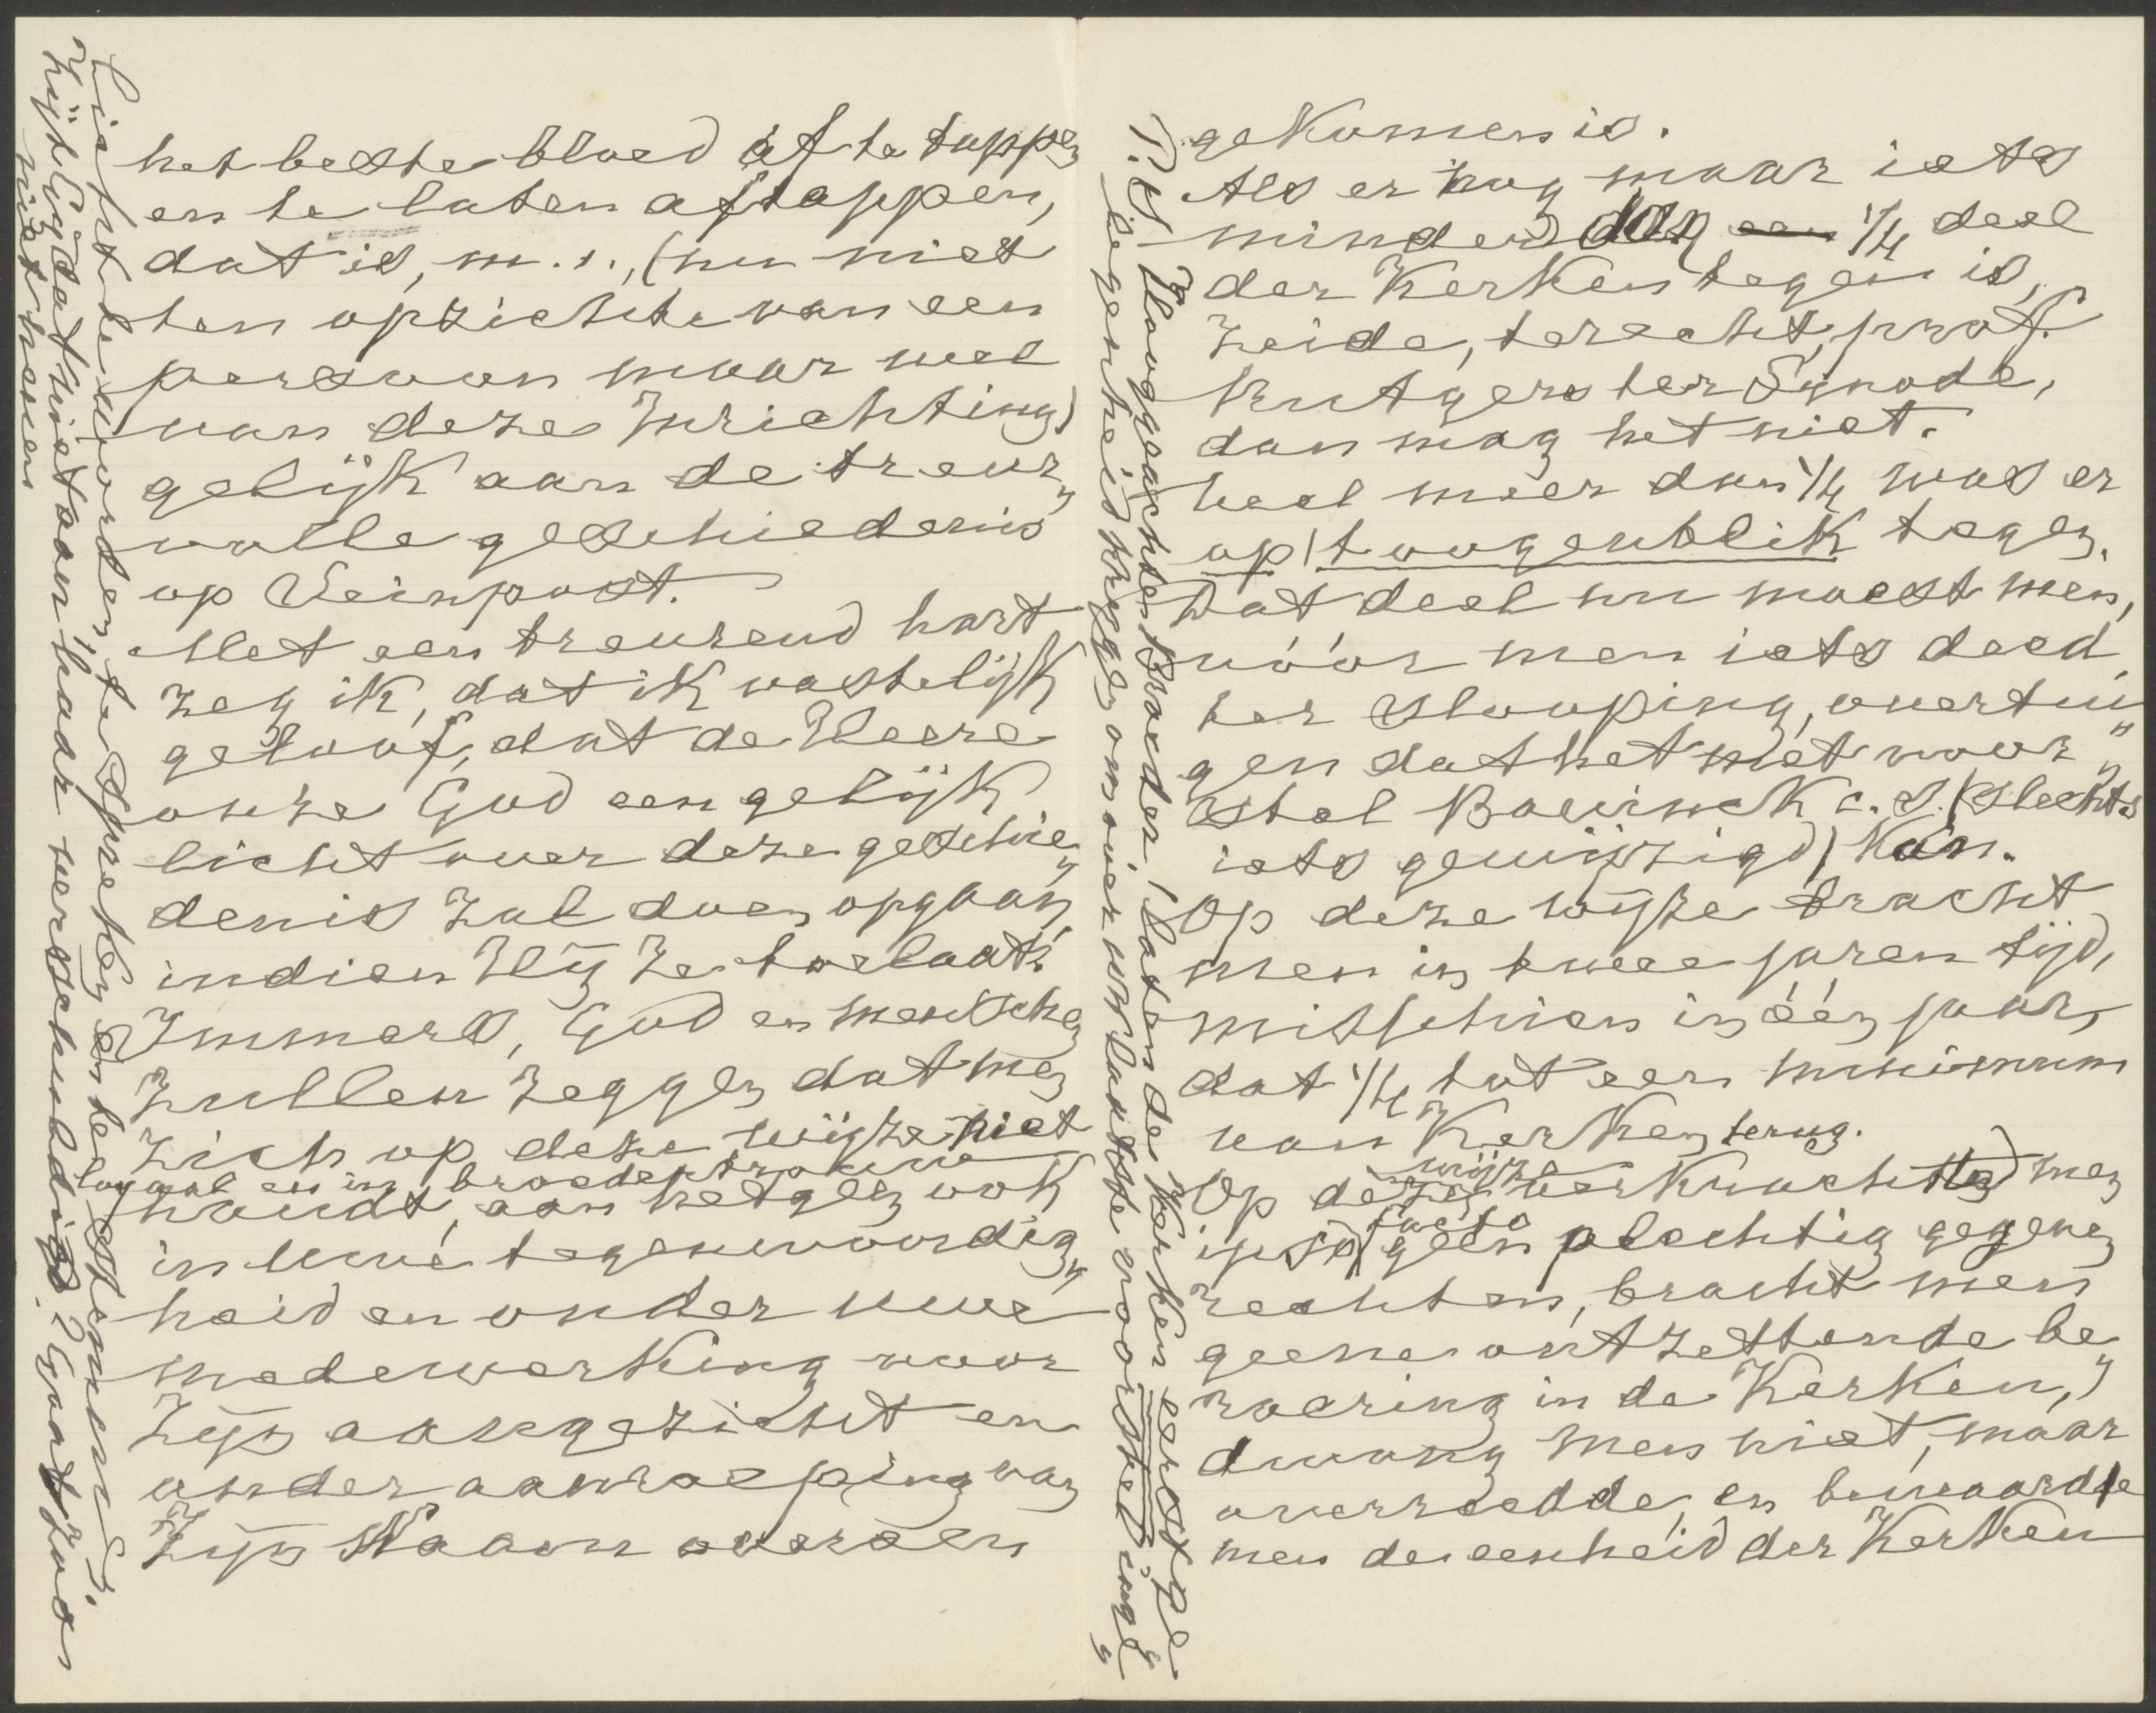 het beste bloed af te tappen
en te laten aftappen,
dat is, m. i., (nu niet
ten opzichte van een
persoon maar wel
van deze Inrichting)
gelijk aan de treur„
volle geschiedenis
op Seinpost.
Met een treurend hart
zeg ik, dat ik vastelijk
geloof, dat de Heere
onze God een gelijk
licht over deze geschie„
denis zal doen opgaan,
indien Hij ze toelaat.
Immers, God en menschen
zullen zeggen dat men
zich op deze wijze niet
loyaal en in broedertrouw
houdt, aan hetgeen ook
in Uwe tegenwoordig„
heid en onder Uwe
medewerking voor
Zijn aangezicht en
onder aanroeping van
Zijn Naam overeen
gekomen is.
Als er nog maar iets
minder dan een 1/4 deel
der Kerken tegen is,
zeide, terecht, prof.
Rutgers ter Synode,
dan mag het niet.
heel meer dan 1/4 was er
op 't oogenblik tegen.
Dat deel nu moest men,
vóór men iets deed
ter slooping, overtui„
gen dat het met voor„
stel Bavinck c. s. (slechts
iets gewijzigd) kan.
Op deze wijze bracht
men in twee jaren tijd,
misschien in één jaar,
dat 1/4 tot een minimum
van Kerken terug.
Op deze wijze verkrachtte men
ipso facto geen plechtig gegeven
rechten, bracht men
geene ontzettende be„
roering in de Kerken,
dwong men niet, maar
overreedde, en bewaarde
men de eenheid der Kerken
P.S. Hooggeachte Broeder, laten de Kerken eerst ge„
legenheid krijgen om over Uw laatste voorstel inge„
licht te worden, te spreken en te stemmen.
Zijt Gij dat niet aan haar verschuldigd? Gaat zoo
niet heen